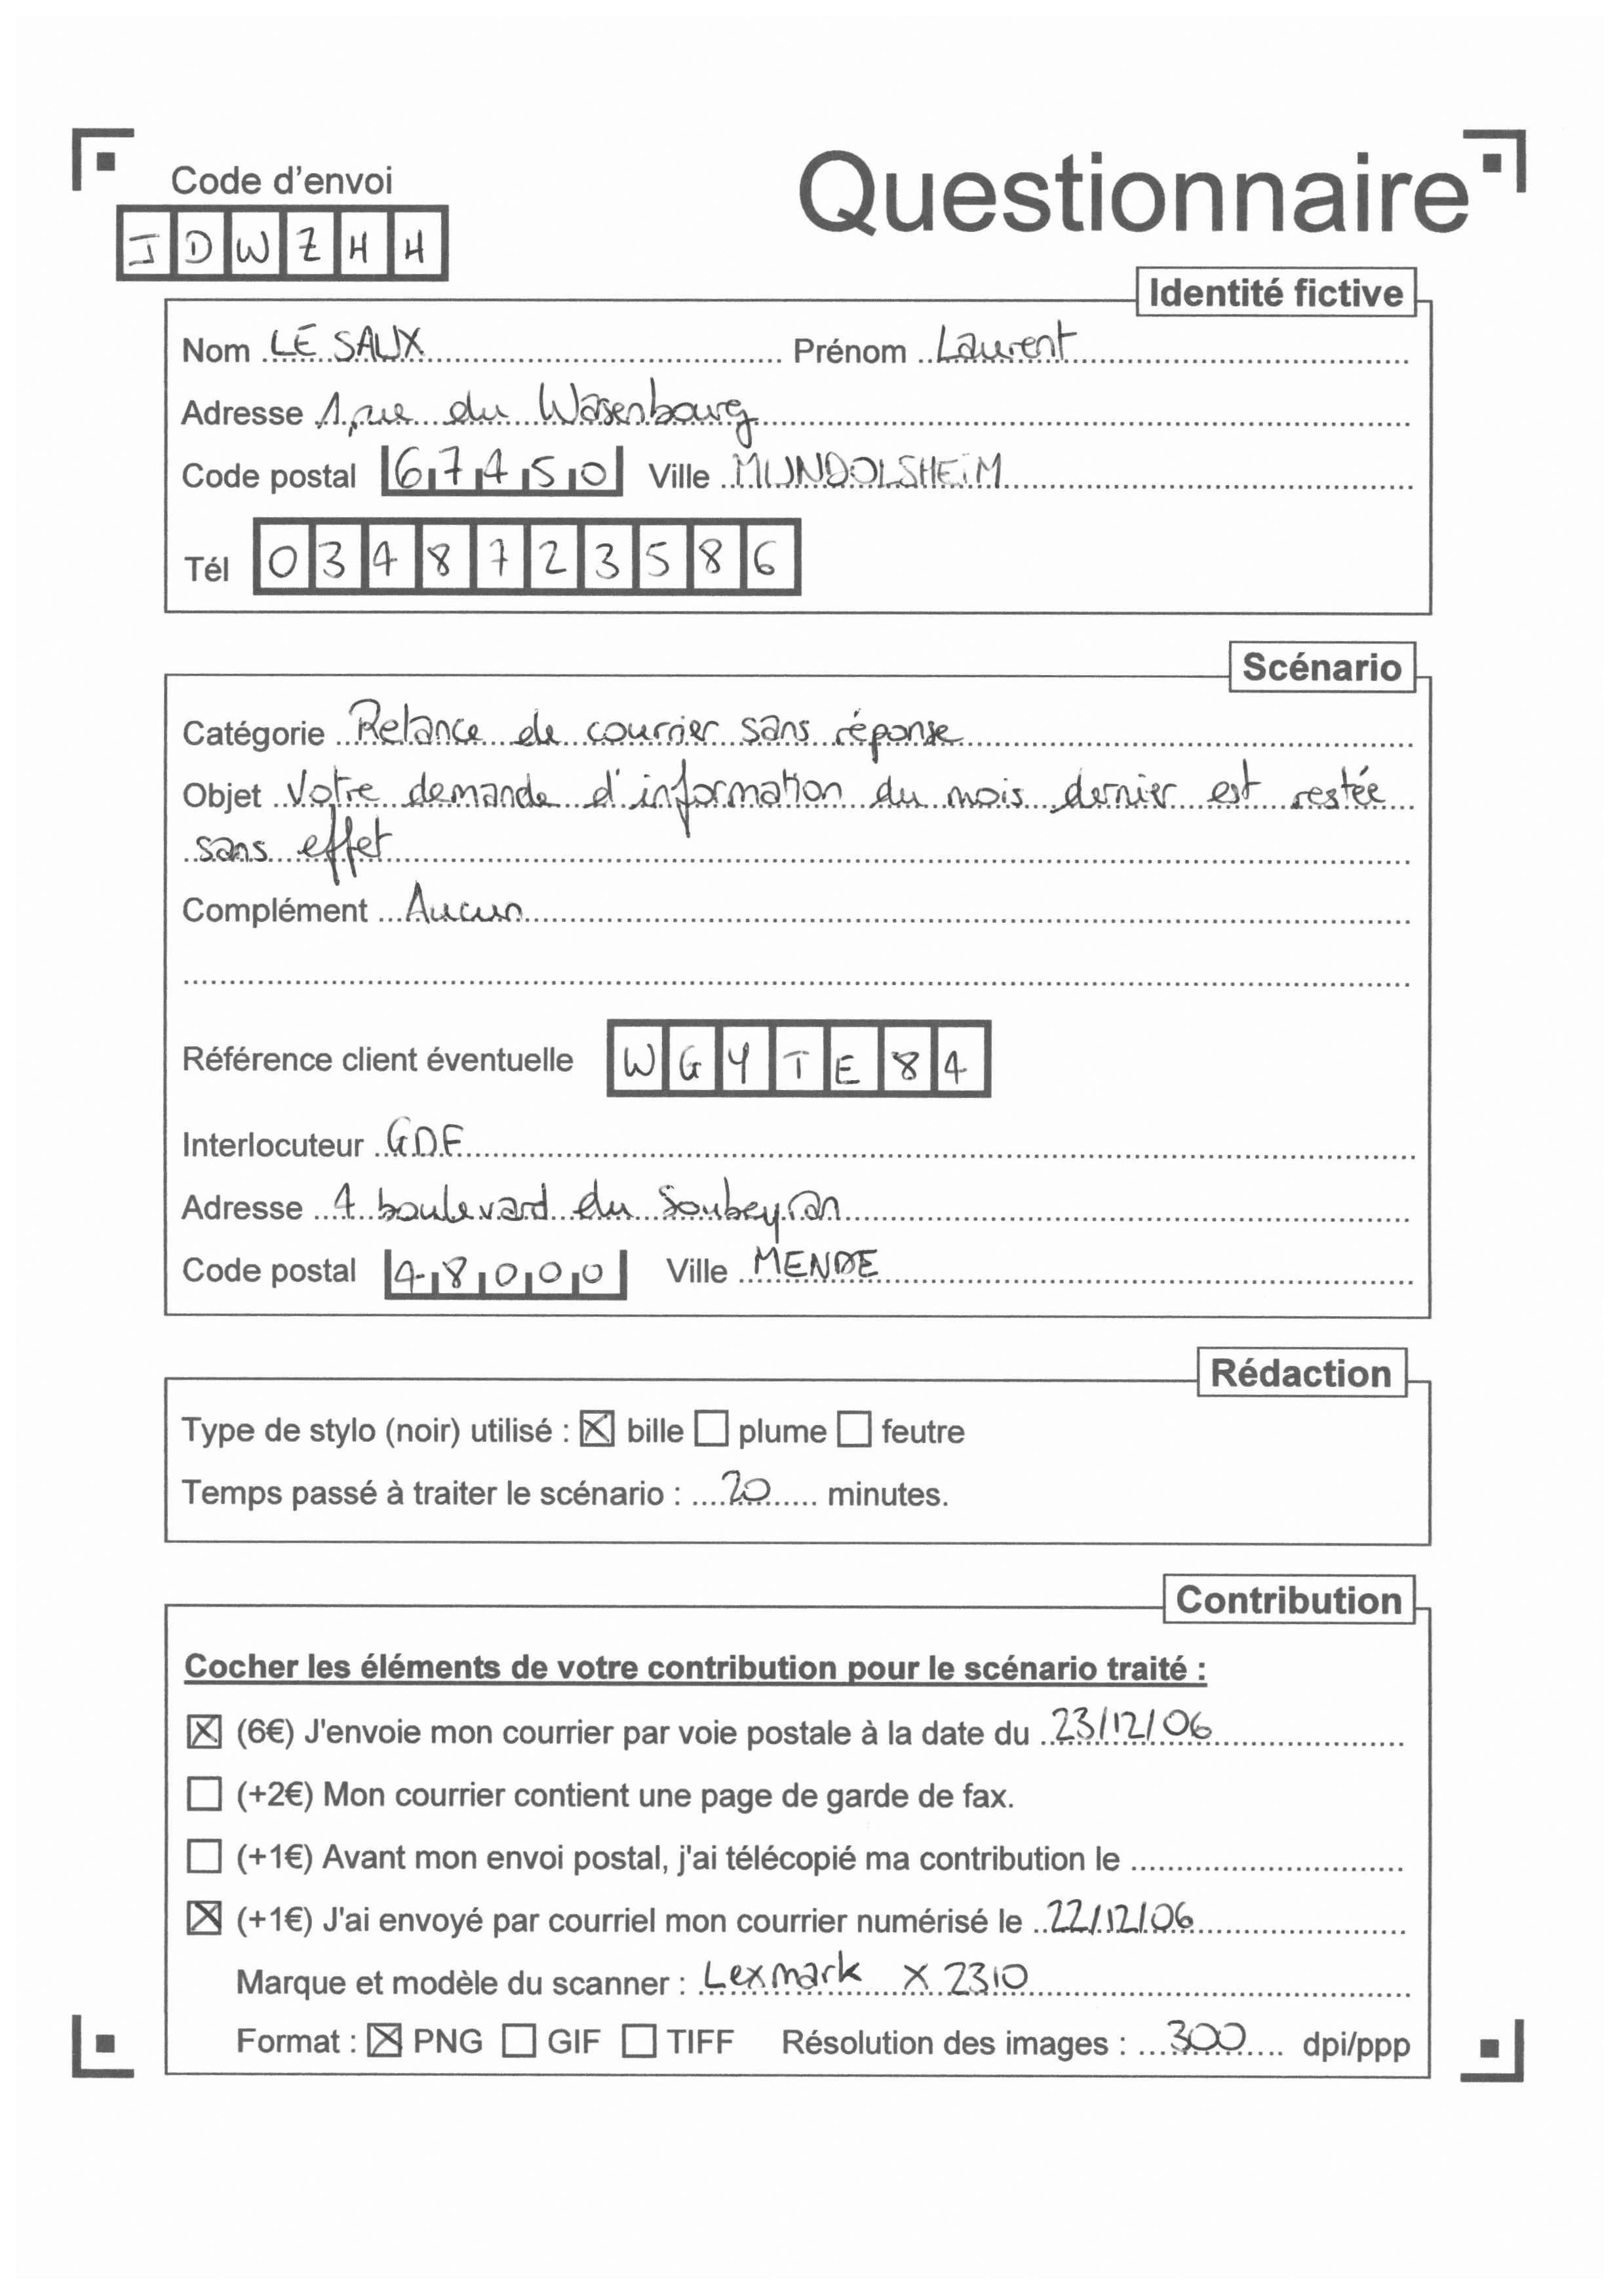 Code d'envoi
Questionnaire
JDWZHH
Identité fictive
Nom LE SAUX Prénom Laurent
Adresse 1, rue du Wasenbourg
Code postal 67450 Ville MUNDOLSHEIM
Tél 0348723586
Scénario
Catégorie Relance de courrier sans réponse
Objet Votre demande d'information du mois dernier est restée
sans effet
Complément Aucun
Référence client éventuelle WGYTE84
Interlocuteur GDF
Adresse 4 boulevard du Soubeyran
Code postal 48000 Ville MENDE
Rédaction
Type de stylo (noir) utilisé : ☒ bille ☐ plume ☐ feutre
Temps passé à traiter le scénario : 20 minutes.
Contribution
Cocher les éléments de votre contribution pour le scénario traité :
☒ (6€) J'envoie mon courrier par voie postale à la date du 23/12/06
☐ (+2€) Mon courrier contient une page de garde de fax.
☐ (+1€) Avant mon envoi postal, j'ai télécopié ma contribution le
☒ (+1€) J'ai envoyé par courriel mon courrier numérisé le 22/12/06
Marque et modèle du scanner : Lexmark X 2310
Format : ☒ PNG ☐ GIF ☐ TIFF Résolution des images : 300 dpi/ppp